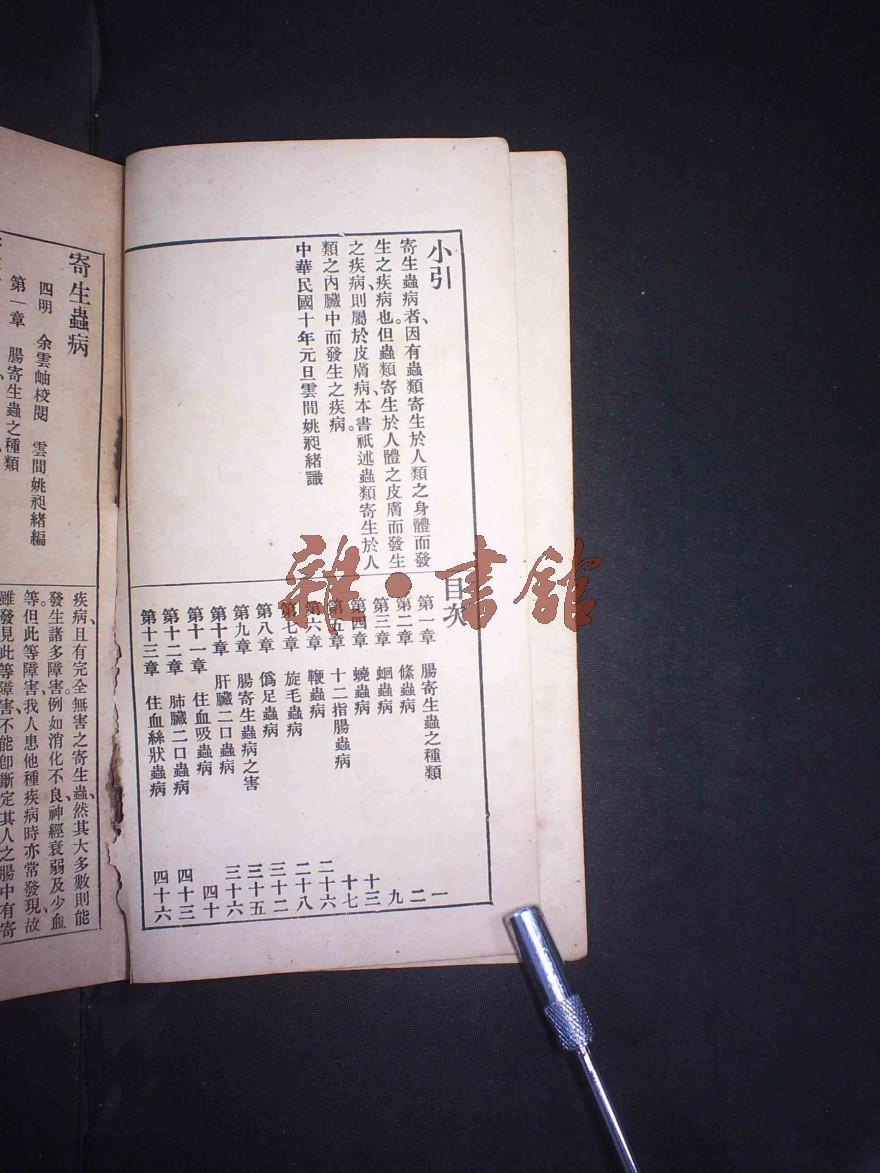 小引
寄生蟲病者、因有蟲類寄生於人類之身體而發
生之疾病也。但蟲類寄生於人體之皮膚而發生
之疾病、則屬於皮膚病、本書祇述蟲類寄生於人
類之內臟中而發生之疾病。
中華民國十年元旦雲間姚昶緒識
目次
第一章 腸寄生蟲之種類 一
第二章 絛蟲病 二
第三章 蛔蟲病 九
第四章 蟯蟲病 十三
第五章 十二指腸蟲病 十七
第六章 鞭蟲病 二十六
第七章 旋毛蟲病 二十八
第八章 僞足蟲病 三十二
第九章 腸寄生蟲病之害 三十五
第十章 肝臟二口蟲病 三十六
第十一章 住血吸蟲病 四十
第十二章 肺臟二口蟲病 四十三
第十三章 住血絲狀蟲病 四十六
寄生蟲病
四明 余雲岫校閱 雲間姚昶緒編
第一章 腸寄生蟲之種類
疾病、且有完全無害之寄生蟲、然其大多數則能
發生諸多障害。例如消化不良、神經衰弱及少血
等。但此等障害、我人患他種疾病時亦常發現、故
雖發見此等障害、不能卽斷定其人之腸中有寄
雜·書館